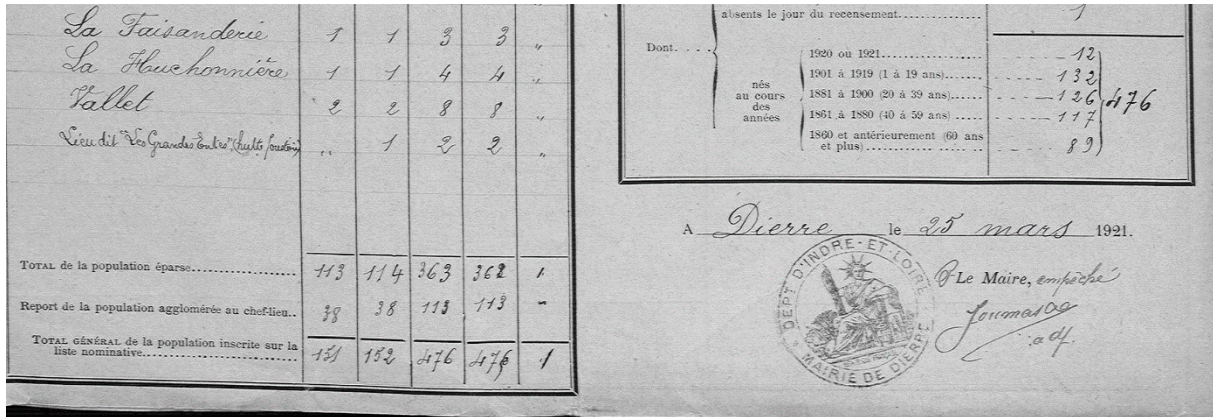 La Faisanderie 1 1 3 3 "
La Huchonnière 1 1 4 4 "
Vallet 2 2 8 8 "
Lieu dit "Les Grandes Entes" " 1 2 2 "
TOTAL de la population éparse 113 114 363 362 1
Report de la population agglomérée au chef-lieu.. 38 38 113 113 "
TOTAL GÉNÉRAL de la population inscrite sur la
liste nominative 151 152 476 475 1
absents le jour du recensement 1
Dont
nés
au cours
des
années
1920 ou 1921 12
1901 à 1919 (1 à 19 ans) 132
1881 à 1900 (20 à 39 ans) 126 476
1861 à 1880 (40 à 59 ans) 117
1860 et antérieurement (60 ans
et plus) 89
A Dierre le 25 mars 1921.
P Le Maire, empêché
adj.
DEPT D'INDRE-ET-LOIRE
MAIRIE DE DIERRE